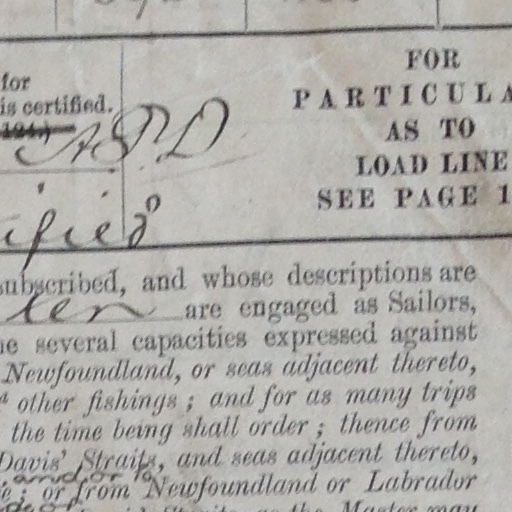 for
is certified.
FOR
PARTICULA
AS TO
LOAD LINE
SEE PAGE 1
ified
subscribed, and whose descriptions are
ten are engaged as Sailors,
he several capacities expressed against
Newfoundland, or seas adjacent thereto,
other fishings; and for as many trips
the time being shall order; thence from
Davis' Straits, and seas adjacent thereto,
and/or to
e; or from Newfoundland or Labrador
the Master may